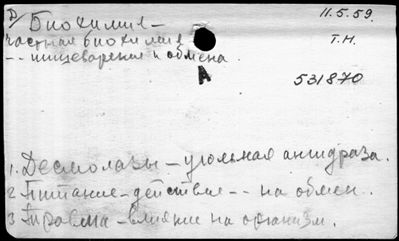 D/ Биохимия –
частная биохимия
-- пищеварения и обмена.
11.5.59.
Т.Н.
A
531870
1. Десмолазы – угольная ангидраза.
2 Питание – действие -- на обмен.
3 Травма – влияние на организм.